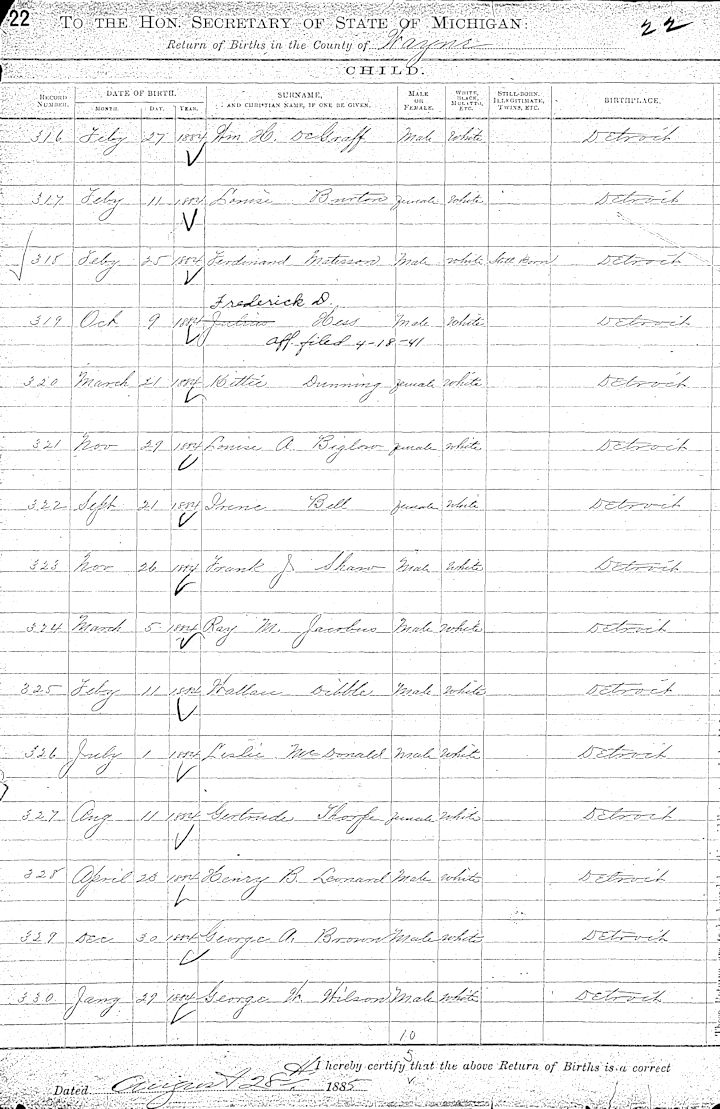 22
TO THE HON. SECRETARY OF STATE OF MICHIGAN:
22
Return of Births in the County of Wayne
CHILD.
RECORD NUMBER. DATE OF BIRTH. MONTH. DAY. YEAR. SURNAME, AND CHRISTIAN NAME, IF ONE BE GIVEN. MALE OR FEMALE. WHITE, BLACK, MULATTO, ETC. STILL-BORN, ILLEGITIMATE, TWINS, ETC. BIRTHPLACE.
316 Feby 27 1884 Wm H. DeGraff Male White Detroit
317 Feby 11 1884 Louise Burton female White Detroit
318 Feby 25 1884 Ferdinand Mateson Male White Still Born Detroit
Frederick D.
319 Oct 9 1884 Julius Hess Male White Detroit
aff. filed 4-18-41
320 March 21 1884 Kittie Dunning female White Detroit
321 Nov 29 1884 Louise A. Biglow female White Detroit
322 Sept 21 1884 Irene Bell female White Detroit
323 Nov 26 1884 Frank J Shaw Male White Detroit
324 March 5 1884 Ray M. Jacobus Male White Detroit
325 Feby 11 1884 Wallace Dibble Male White Detroit
326 July 1 1884 Leslie McDonald Male White Detroit
327 Aug 11 1884 Gertrude Thorpe female White Detroit
328 April 23 1884 Henry B. Leonard Male White Detroit
329 Dec 30 1884 George A. Brown Male White Detroit
330 Jany 29 1884 George W. Wilson Male White Detroit
10
5
I hereby certify that the above Return of Births is a correct
Dated August 28 1885